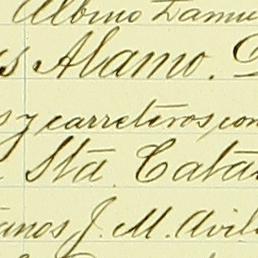 Albino Ramir
s Alamo. D
s y carreteros, con
Sta. Catar
anos J. M. Avil